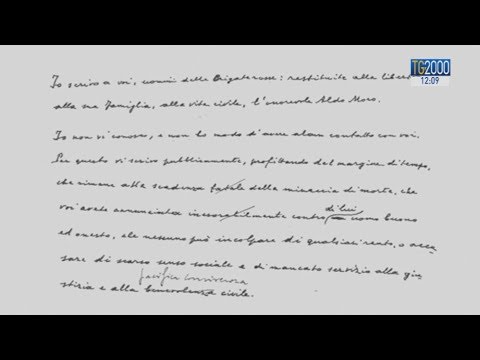 TG2000
12:09
Io scrivo a voi, uomini delle Brigate rosse: restituite alla libertà
alla sua famiglia, alla vita civile, l'onorevole Aldo Moro.
Io non vi conosco, e non ho modo d'avere alcun contatto con voi.
Per questo vi scrivo pubblicamente, profittando del margine di tempo,
che rimane alla scadenza fatale della minaccia di morte, che
di lui,
voi avete annunciata inesorabilmente contro uomo buono
ed onesto, che nessuno può incolpare di qualsiasi reato, o accu-
sare di scarso senso sociale e di mancato servizio alla giu-
pacifica convivenza
stizia e alla benevolenza civile.